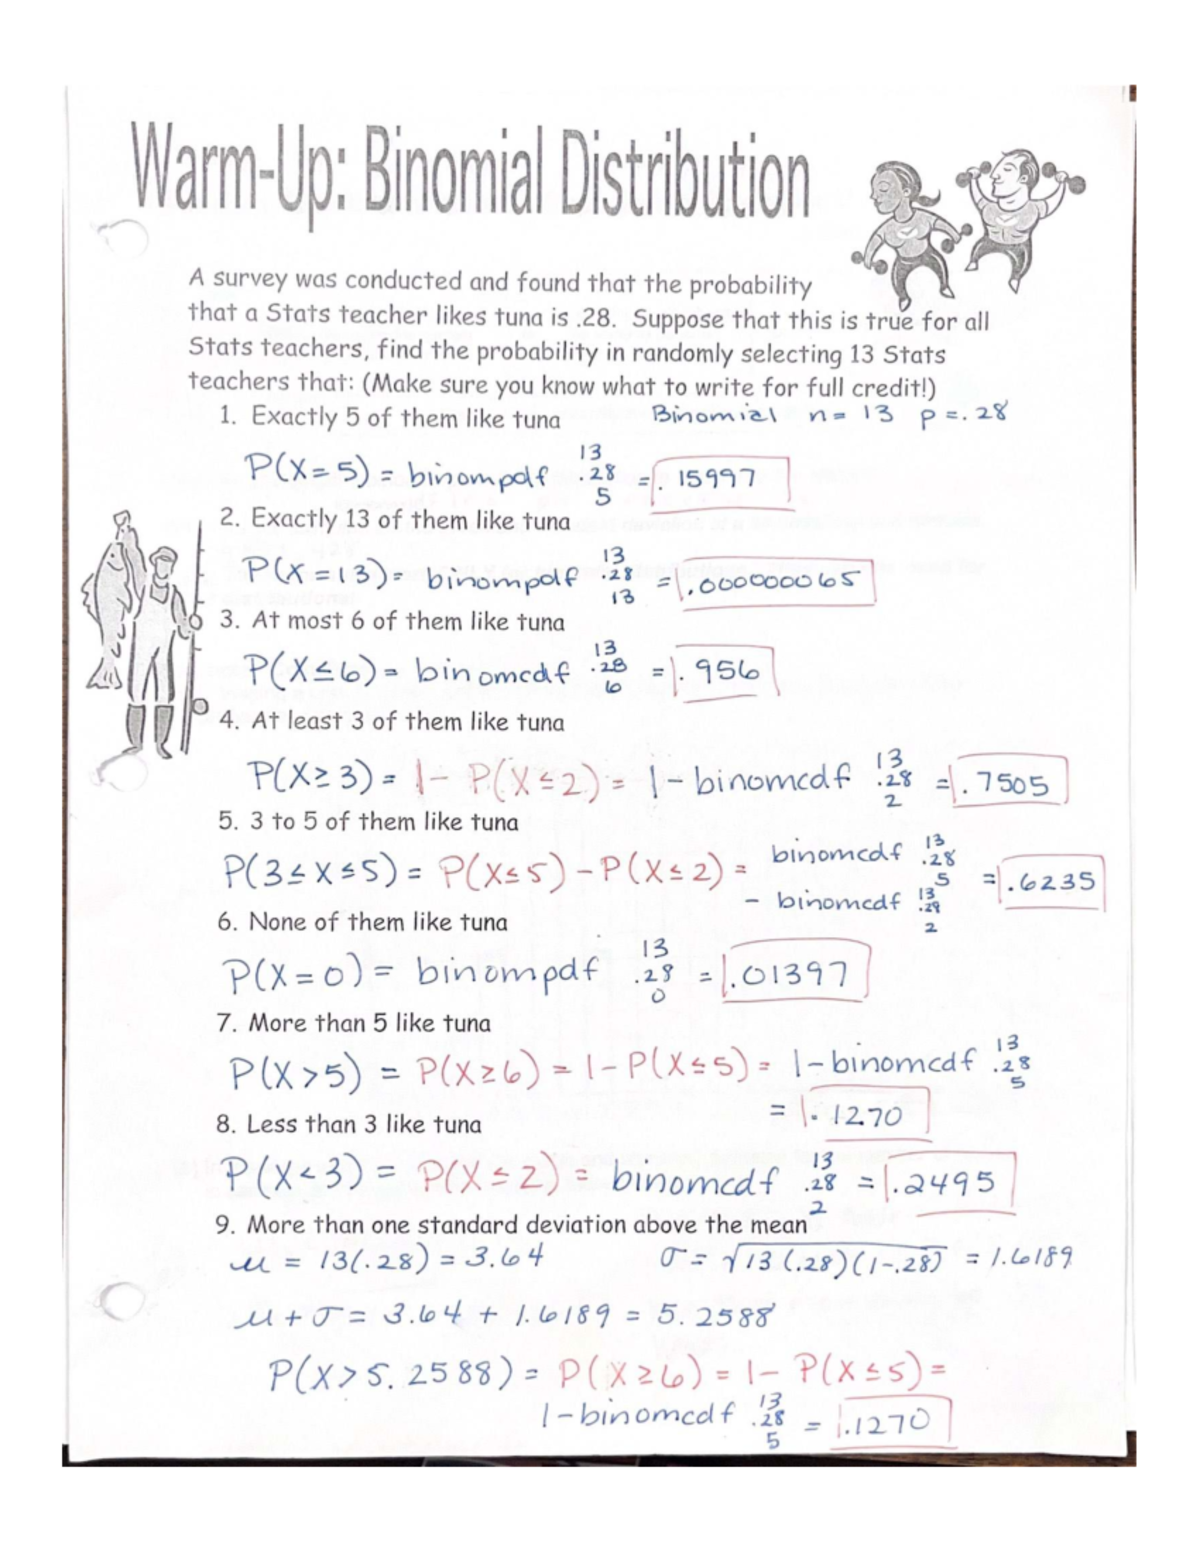 Warm-Up: Binomial Distribution
A survey was conducted and found that the probability
that a Stats teacher likes tuna is .28. Suppose that this is true for all
Stats teachers, find the probability in randomly selecting 13 Stats
teachers that: (Make sure you know what to write for full credit!)
1. Exactly 5 of them like tuna Binomial n = 13 p = .28
P(X = 5) = binompdf 13 .28 5 = .15997
2. Exactly 13 of them like tuna
P(X = 13) = binompdf 13 .28 13 = .000000065
3. At most 6 of them like tuna
P(X ≤ 6) = binomcdf 13 .28 6 = .956
4. At least 3 of them like tuna
P(X ≥ 3) = 1 - P(X ≤ 2) = 1 - binomcdf 13 .28 2 = .7505
5. 3 to 5 of them like tuna
P(3 ≤ X ≤ 5) = P(X ≤ 5) - P(X ≤ 2) = binomcdf 13 .28 5
- binomcdf 13 .28 2 = .6235
6. None of them like tuna
P(X = 0) = binompdf 13 .28 0 = .01397
7. More than 5 like tuna
P(X > 5) = P(X ≥ 6) = 1 - P(X ≤ 5) = 1 - binomcdf 13 .28 5
= .1270
8. Less than 3 like tuna
P(X < 3) = P(X ≤ 2) = binomcdf 13 .28 2 = .2495
9. More than one standard deviation above the mean
μ = 13(.28) = 3.64 σ = √13(.28)(1-.28) = 1.6189
μ + σ = 3.64 + 1.6189 = 5.2588
P(X > 5.2588) = P(X ≥ 6) = 1 - P(X ≤ 5) =
1 - binomcdf 13 .28 5 = .1270